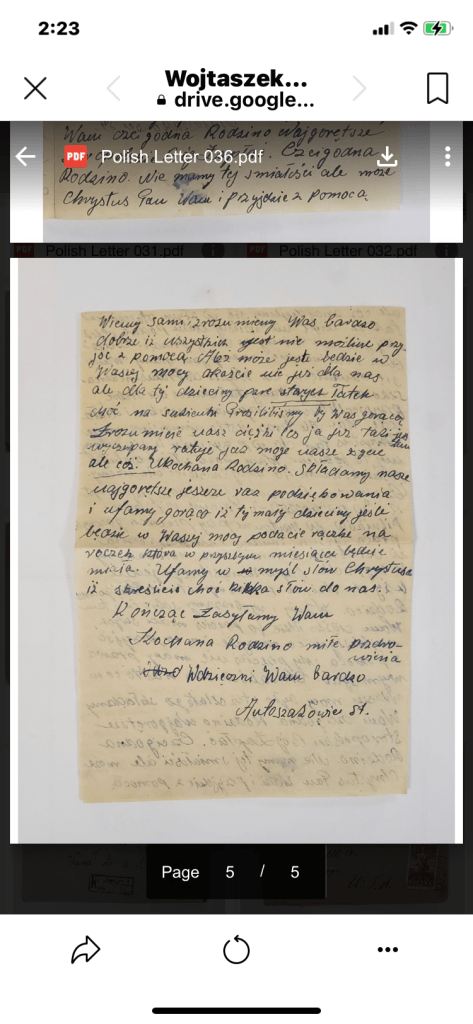 2:23
Wojtaszek...
drive.google...
Wam czcigodna Rodzino Najgorętsze
PDF Polish Letter 036.pdf
Czcigodna
Rodzino. Nie mamy tej śmiałości ale może
Chrystus Pan Wam i przyjdzie z pomocą.
Polish Letter 031.pdf
PDF Polish Letter 032.pdf
Wiemy sami zrozumiemy Was bardzo
dobrze iż wszystkim jest nie możliwe przy
jść z pomocą. Ale może jeśli będzie w
Waszej mocy okażcie nie już dla nas
ale dla tej dzieciny parę starych
choć na sukienki Prosilibiśmy by Was gorąco
Zrozumicie nasz ciężki los ja już
wyczerpany ratuję jak mogę nasze życie
ale cóż. Ukochana Rodzino. Składamy nasze
najgorętsze jeszcze raz podziękowania
i ufamy gorąco iż tej małej dziecinie jeśli
będzie w Waszej mocy podacie rączkę na
roczek która w przyszłym miesiącu będzie
miała. Ufamy w myśl słów Chrystusa
iż skreślicie choć kilka słów do nas.
Kończąc Zasyłamy Wam
Kochana Rodzino miłe pozdro-
wienia
Wdzięczni Wam bardzo
St.
Page 5 / 5